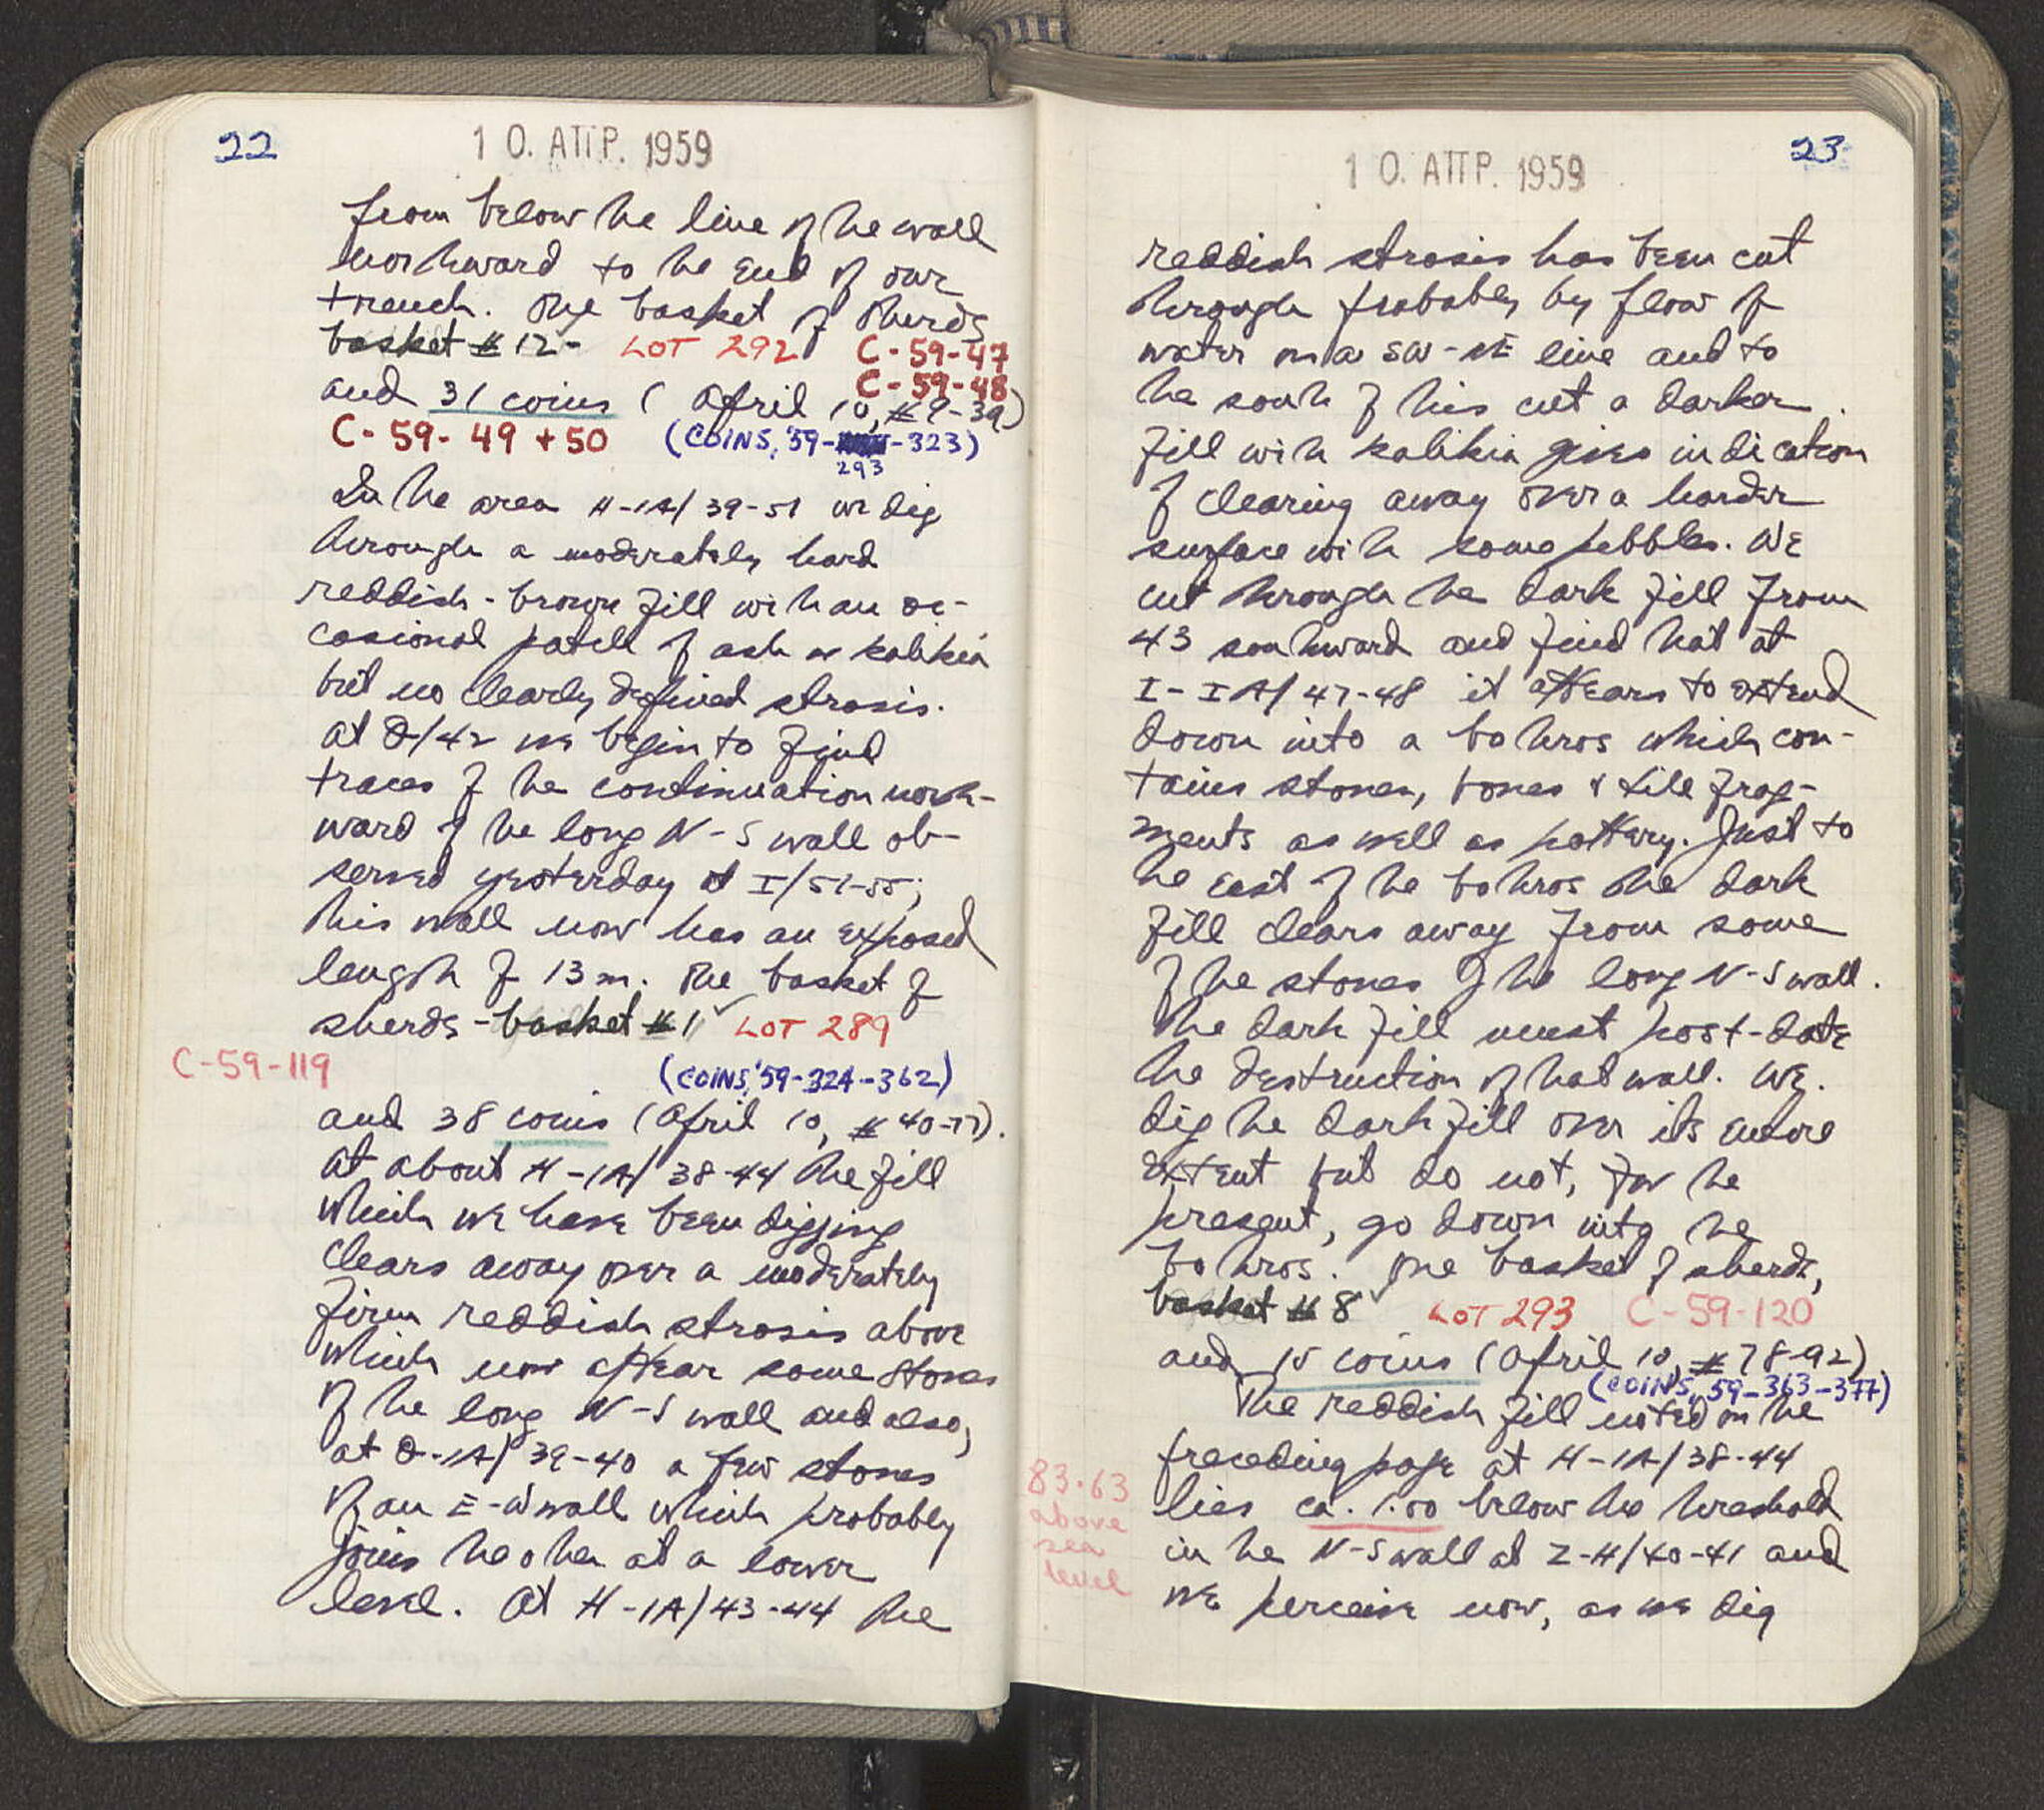 22
1 0. ΑΠΡ. 1959
from below the line of the wall
northward to the end of our
trench. One basket of sherds
basket # 12- LOT 292 C-59-47
C-59-48
and 31 coins (April 10, #9-39)
C-59-49+50 (COINS, '59- -323)
293
In the area H-IA/39-51 we dig
through a moderately hard
reddish-brown fill with an oc-
casional patch of ash or kalikia
but no clearly defined strosis.
At Θ/42 we begin to find
traces of the continuation north-
ward of the long N-S wall ob-
served yesterday at I/51-55;
this wall now has an exposed
length of 13 m. One basket of
sherds - basket # 11 LOT 289
C-59-119
(COINS, '59-324-362)
and 38 coins (April 10, # 40-77).
At about H-IA/38-44 the fill
which we have been digging
clears away over a moderately
firm reddish strosis above
which now appear some stones
of the long N-S wall and also,
at Θ-IA/39-40 a few stones
of an E-W wall which probably
joins the other at a lower
level. At H-IA/43-44 the
23
1 0. ΑΠΡ. 1959
reddish strosis has been cut
through probably by flow of
water on a SW-NE line and to
the south of this cut a darker
fill with kalikia gives indication
of clearing away over a harder
surface with some pebbles. We
cut through the dark fill from
43 southward and find that at
I-IA/47-48 it appears to extend
down into a bothros which con-
tains stones, bones & tile frag-
ments as well as pottery. Just to
the east of the bothros the dark
fill clears away from some
of the stones of the long N-S wall.
The dark fill must post-date
the destruction of that wall. We
dig the dark fill over its entire
extent but do not, for the
present, go down into the
bothros. One basket of sherds,
basket # 8 LOT 293 C-59-120
and 15 coins (April 10, # 78-92)
(COINS, '59-363-377)
The reddish fill noted on the
preceding page at H-IA/38-44
lies ca. 1.00 below the threshold
83.63
above
sea
level
in the N-S wall at Z-H/40-41 and
we perceive now, as we dig